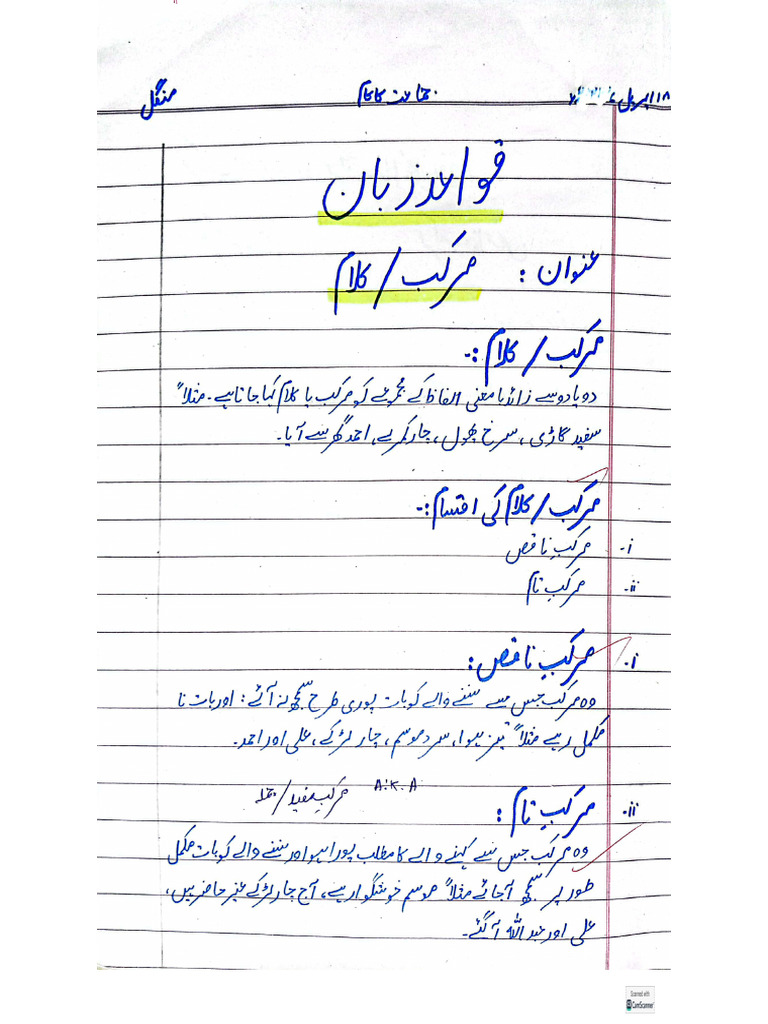 ۱۸ اپریل جماعت کا کام منگل
قواعد زبان
عنوان : مرکب / کلام
مرکب / کلام :-
دو یا دو سے زائد با معنی الفاظ کے مجموعے کو مرکب یا کلام کہا جاتا ہے۔ مثلاً
سفید گاڑی ، سرخ پھول ، چار کمرے، احمد گھر سے آیا۔
مرکب / کلام کی اقسام :-
i- مرکبِ ناقص
ii- مرکبِ تام
i. مرکبِ ناقص :
وہ مرکب جس سے سننے والے کو بات پوری طرح سمجھ نہ آئے : اور بات نا
مکمل رہے مثلاً تیز ہوا، سرد موسم ، چار لڑکے ، علی اور احمد۔
A.K.A مرکبِ مفید / جملہ
ii. مرکبِ تام :
وہ مرکب جس سے کہنے والے کا مطلب پورا ہو اور سننے والے کو بات مکمل
طور پر سمجھ آ جائے مثلاً موسم خوشگوار ہے، آج چار لڑکے غیر حاضر ہیں،
علی اور عبداللہ آ گئے۔
Scanned with
CamScanner